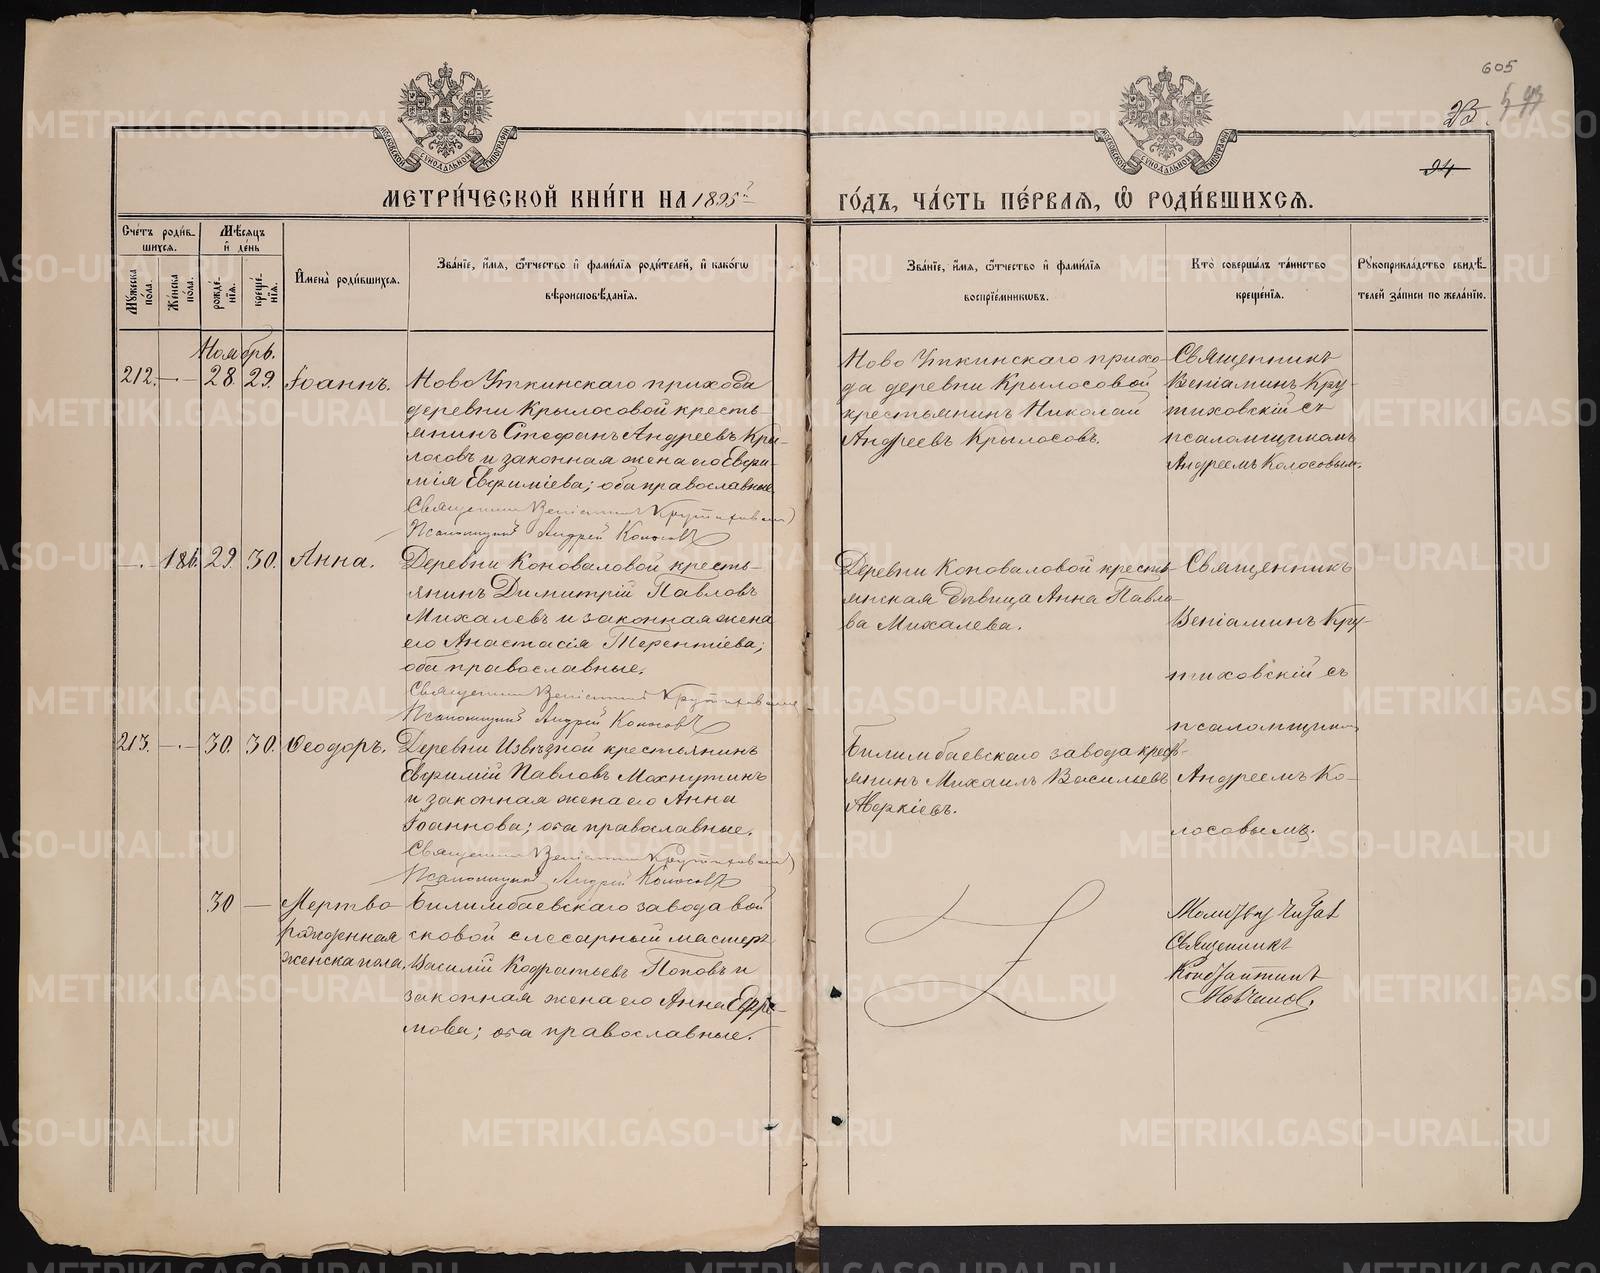 605
23.
24
МОСКОВСКОЙ СѴНОДАЛЬНОЙ ТИПОГРАФІИ
МОСКОВСКОЙ СѴНОДАЛЬНОЙ ТИПОГРАФІИ
МЕТРИ́ЧЕСКОЙ КНИ́ГИ НА 1895й
ГО́ДЪ, ЧА́СТЬ ПЕ́РВАЯ, Ѡ҆ РОДИ́ВШИХСЯ.
Сче́тъ роди́в-
шихся.
Мѣ́сяцъ
и҆ де́нь
Му́жеска
по́ла.
Же́нска
по́ла.
рожде́-
нїя.
креще́-
нїя.
И҆мена̀ роди́вшихся.
Зва́нїе, и҆́мя, ѻ҆́тчество и҆ фами́лїя роди́телей, и҆ како́гѡ
вѣроисповѣ́данїя.
Зва́нїе, и҆́мя, ѻ҆́тчество и҆ фами́лїя
воспрїе́мникѡвъ.
Кто̀ соверша́лъ та́инство
креще́нїя.
Рꙋкоприкла́дство свидѣ́-
телей за́писи по жела́нїю.
Ноябрь.
212. — · — 28. 29. Іоаннъ.
Ново Уткинскаго прихода
деревни Крылосовой кресть-
янинъ Стефанъ Андреевъ Кры-
лосовъ и законная жена его Евфи-
мія Евфиміева; оба православные
Священникъ Веніаминъ Крутиховскій
Псаломщикъ Андрей Колосовъ
Ново Уткинскаго прихо-
да деревни Крылосовой
крестьянинъ Николай
Андреевъ Крылосовъ.
Священникъ
Веніаминъ Кру-
тиховскій съ
псаломщикомъ
Андреемъ Колосовым.
— . 186. 29. 30. Анна.
Деревни Коноваловой кресть-
янинъ Димитрій Павловъ
Михалевъ и законная жена
его Анастасія Терентіева;
оба православные.
Священникъ Веніаминъ Крутиховскій
Псаломщикъ Андрей Колосовъ
Деревни Коноваловой кресть-
янская девица Анна Павло-
ва Михалева.
Священникъ
Веніаминъ Кру-
тиховскій съ
псаломщиком
Андреемъ Ко-
лосовымъ.
213. — · — 30. 30. Ѳеодоръ.
Деревни Извѣзной крестьянинъ
Евфимій Павловъ Махнутинъ
и законная жена его Анна
Іоаннова; оба православные.
Священникъ Веніаминъ Крутиховскій
Псаломщикъ Андрей Колосовъ
Билимбаевскаго завода крест-
янинъ Михаилъ Васильевъ
Аверкіевъ.
30 — Мертво
рожденная
женска пола.
Билимбаевскаго завода вой
сковой слесарный мастеръ
Василій Кодратьевъ Поповъ и
законная жена его Анна Ефре-
мова; оба православные.
Молитву читал
Священникъ
Константинъ
METRIKI.GASO-URAL.RU